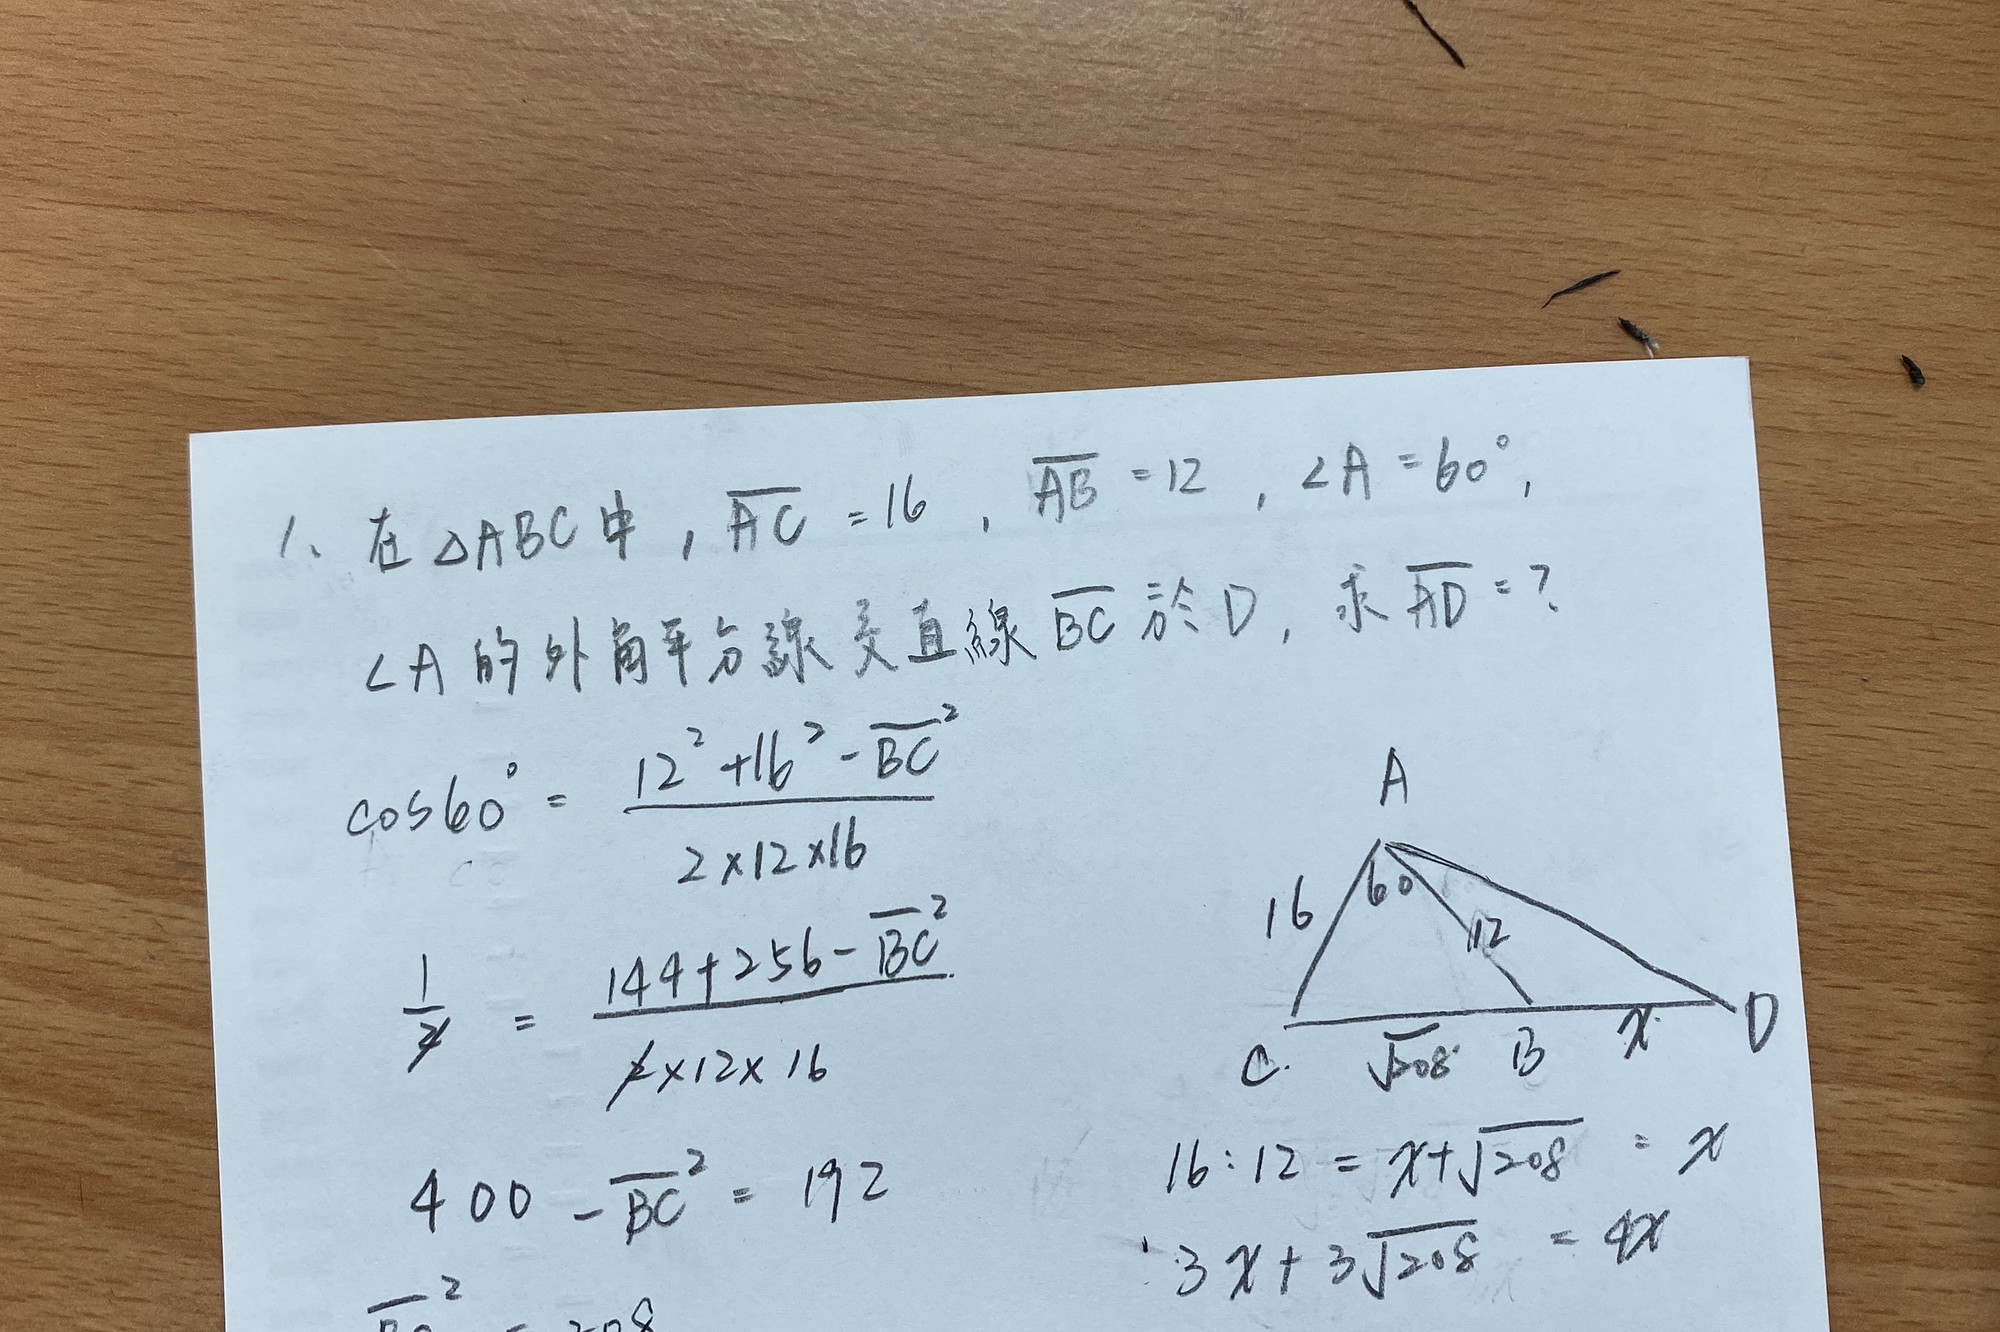 1、在△ABC中，A̅C̅=16，A̅B̅=12，∠A=60°，
∠A的外角平分線交直線B̅C̅於D，求A̅D̅=?
cos60° = (12²+16²-B̅C̅²)/(2×12×16)
1/2 = (144+256-B̅C̅²)/(2×12×16)
400-B̅C̅² = 192
B̅C̅² = 208
A
16
60
12
C
√208
B
x
D
16:12 = x+√208 = x
3x+3√208 = 4x